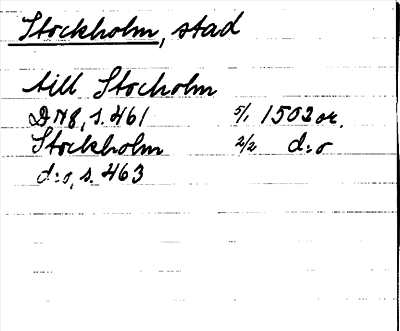 Stockholm, stad
till Stocholm
DN8, s. 461 5/1 1502 or.
Stockholm 2/2 d:o
d:o, s. 463